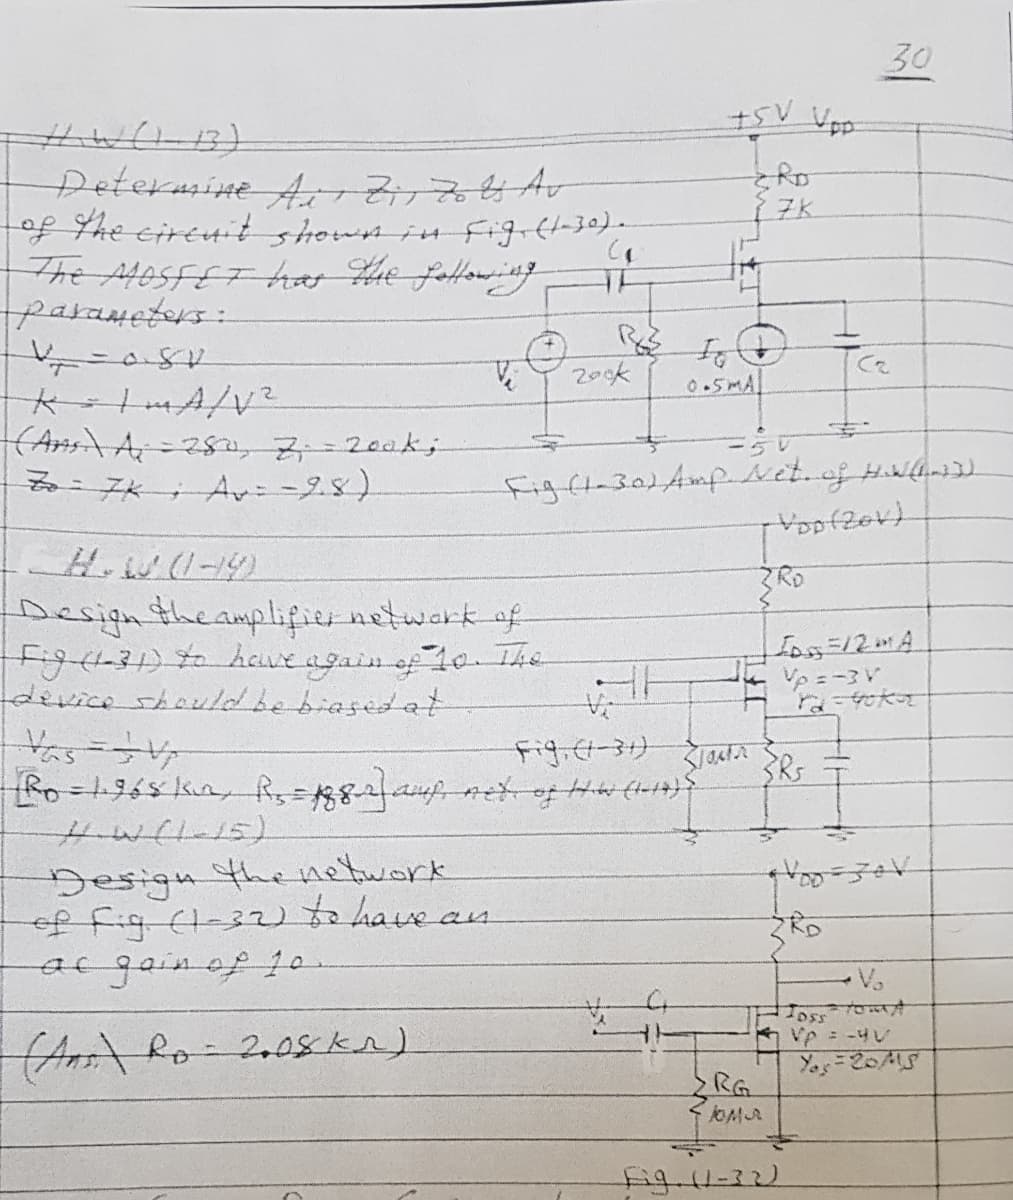 30
H.W(1-13)
Determine Ai, Zi, Zo & Av
of the circuit shown in Fig. (1-30).
The MOSFET has the following
parameters:
VT = 0.8V
k = 1 mA/V²
(Ans.\ Ai = 280, Zi = 200k;
Zo = 7k ; Av = -9.8)
+5V VDD
RD
7K
C1
RG
200k
Vi
IQ
0.5mA
C2
-5V
Fig (1-30) Amp. Net. of H.W(1-13)
H.W (1-14)
Design the amplifier network of
Fig (1-31) to have again of -10. The
device should be biased at
VGS = 1/3 Vp
[RD = 1.968 kΩ, Rs = 188Ω]
VDD (20V)
RD
IDSS = 12 mA
Vp = -3V
rd = 40kΩ
Vi
10MΩ
RS
Fig. (1-31)
amp. net. of H.W (1-14)
H.W(1-15)
Design the network
of Fig. (1-32) to have an
ac gain of 10.
(Ans.\ RD = 2.08 kΩ)
VDD = 30V
RD
Vo
Vi
C1
IDSS = 10mA
Vp = -4V
Yos = 20MS
RG
10MΩ
Fig. (1-32)